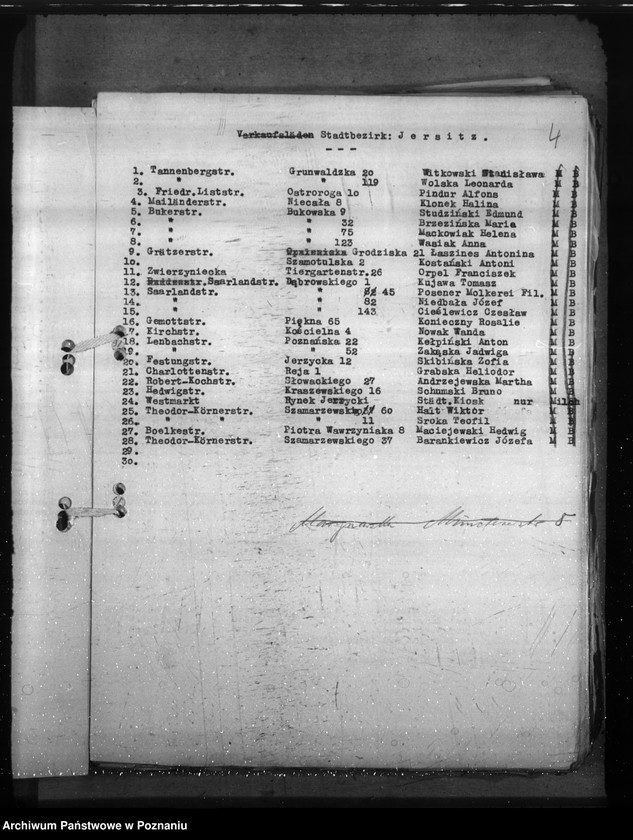 4
Verkaufsläden Stadtbezirk: Jersitz.
- - -
1. Tannenbergstr. Grunwaldzka 20 Witkowski Stanisława M B
2. " " 119 Wolska Leonarda M B
3. Friedr.Liststr. Ostroroga 10 Pindur Alfons M B
4. Mailänderstr. Niecała 8 Klonek Halina M B
5. Bukerstr. Bukowska 9 Studziński Edmund M B
6. " " 32 Brzezińska Maria M B
7. " " 75 Maćkowiak Helena M B
8. " " 123 Wasiak Anna M B
9. Grätzerstr. Grodziska 21 Łaszines Antonina M B
10. Szamotulska 2 Kostański Antoni M B
11. Zwierzyniecka Tiergartenstr.26 Orpel Franciszek M B
12. Saarlandstr. Dąbrowskiego 1 Kujawa Tomasz M B
13. Saarlandstr. " 45 Posener Molkerei Fil. M B
14. " " 82 Niedbała Józef M B
15. " " 143 Cieślewicz Czesław M B
16. Gemottstr. Piękna 65 Konieczny Rosalie M B
17. Kirchstr. Kościelna 4 Nowak Wanda M B
18. Lenbachstr. Poznańska 22 Kełpiński Anton M B
19. " " 52 Jadwiga M B
20. Festungstr. Jerzycka 12 Skibińska Zofia M B
21. Charlottenstr. Reja 1 Grabska Heliodor M B
22. Robert-Kochstr. Słowackiego 27 Andrzejewska Martha M B
23. Hedwigstr. Kraszewskiego 16 Schumski Bruno M B
24. Westmarkt Rynek Jerzycki Städt.Kiosk nur Milch
25. Theodor-Körnerstr. Szamarzewskiego 60 Hait Wiktor M B
26. " " " 11 Sroka Teofil M B
27. Boelkestr. Piotra Wawrzyniaka 8 Maciejewski Hedwig M B
28. Theodor-Körnerstr. Szamarzewskiego 37 Barankiewicz Józefa M B
29.
30.
Archiwum Państwowe w Poznaniu